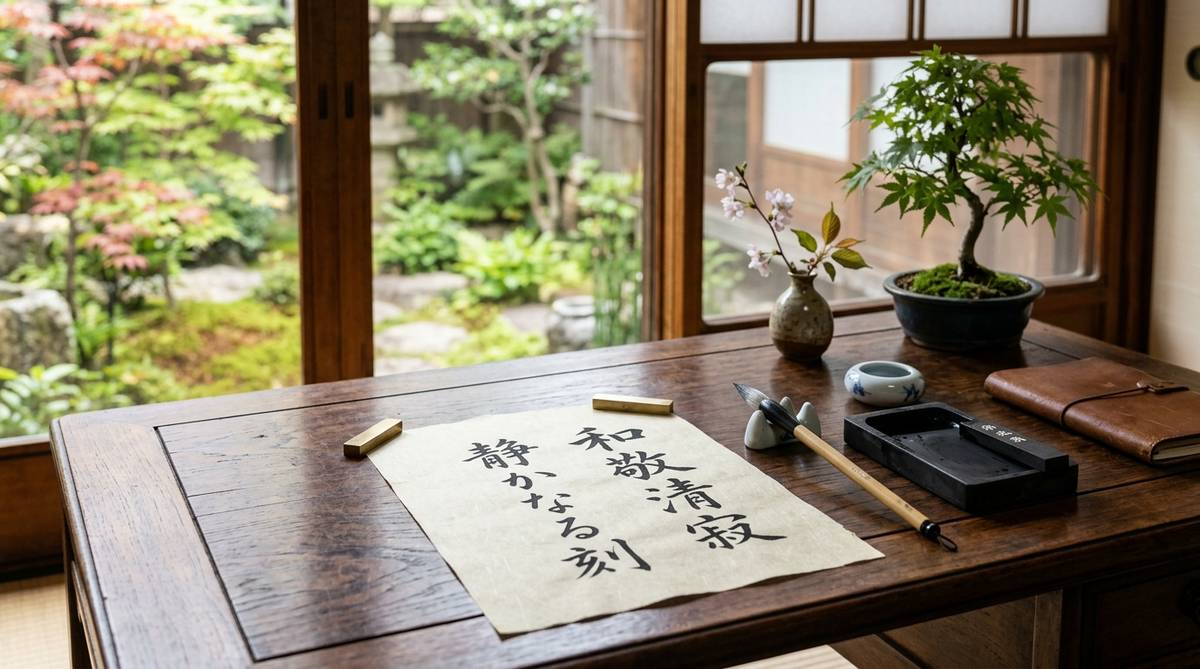 和敬清寂
静かなる刻